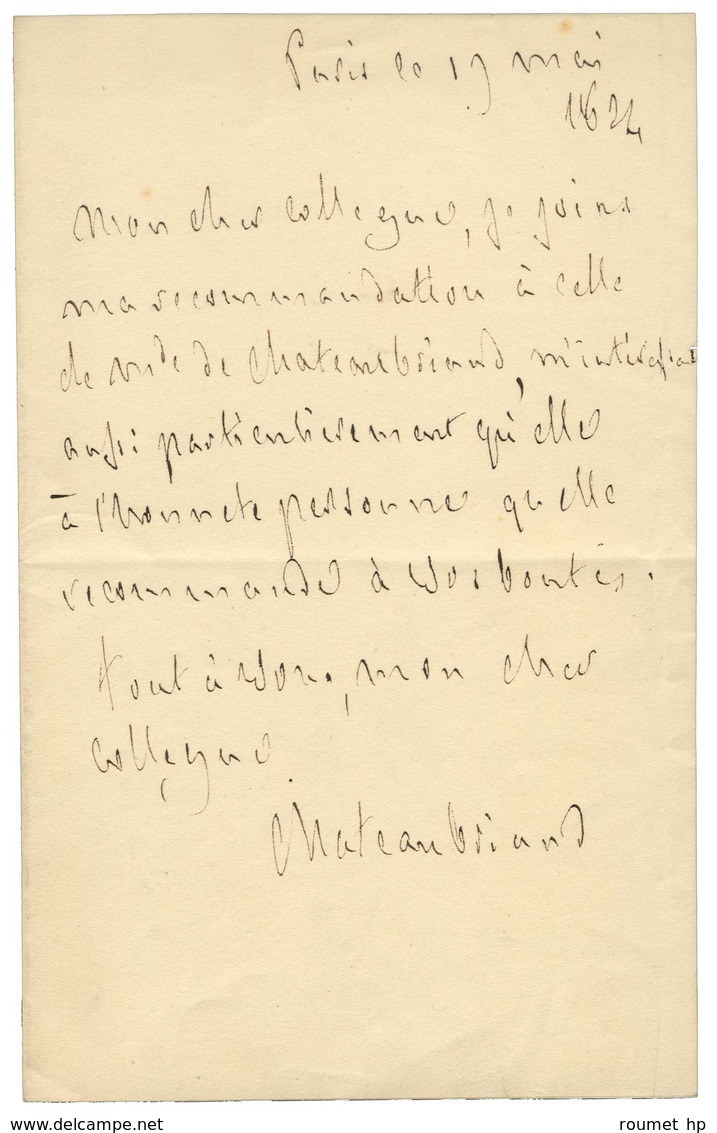 Paris le 19 mai
1824
Mon cher collegue, je joins
ma recommandation à celle
de Mde de Chateaubriand, m'intéressant
aussi particulierement qu'elle
à l'honnete personne qu'elle
recommande à vos bontés.
Tout à vous, mon cher
collegue
Chateaubriand
www.delcampe.net
roumet hp